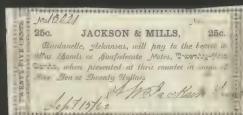 No 13621
25c. JACKSON & MILLS, 25c.
Dardanelle, Arkansas, will pay to the bearer in
Shunds or Confederate Notes, Twenty-Five
Cents, when presented at their counter in sums of
Five Ten or Twenty Dollars.
Sept 15/62
TWENTY FIVE CENTS